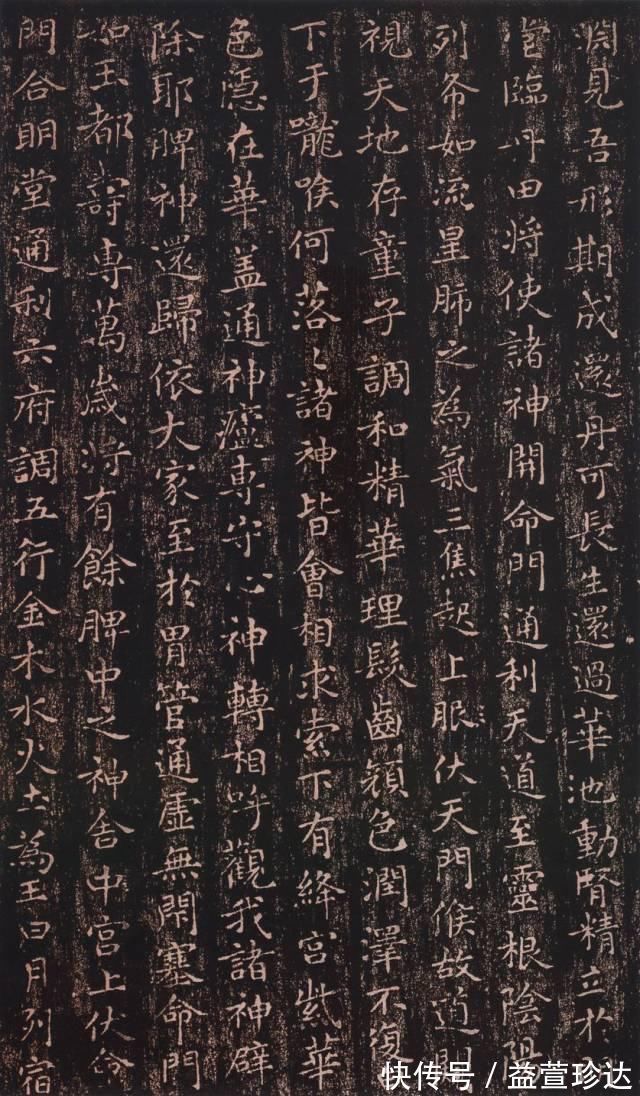 渕見吾形期成還丹可長生還過華池動腎精立於
堂臨丹田將使諸神開命門通利天道至靈根陰陽
列布如流星肺之為氣三焦起上服伏天門候故道
視天地存童子調和精華理髮齒顏色潤澤不復
下于嚨喉何落々諸神皆會相求索下有絳宮紫華
色隱在華蓋通神廬專守心神轉相呼觀我諸神辟
除耶脾神還歸依大家至於胃管通虛無閇塞命門
如玉都壽專萬歲將有餘脾中之神舍中宮上伏命
門合明堂通利六府調五行金木水火土為王日月列宿
快传号 / 益萱珍达